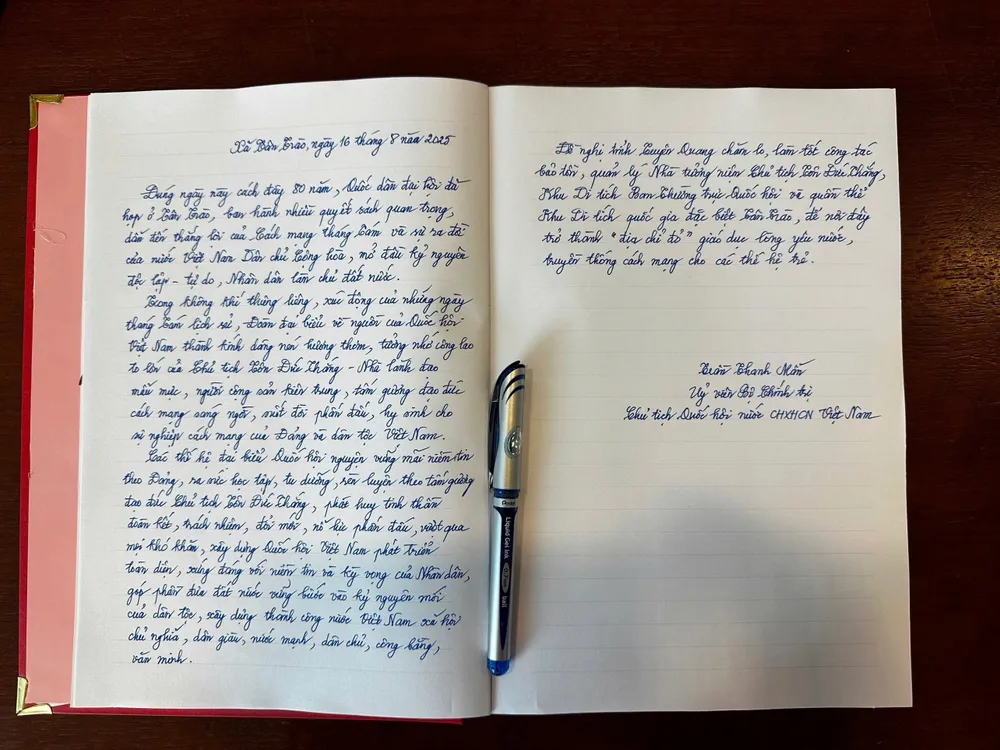 Xã Tân Trào, ngày 16 tháng 8 năm 2025
Đúng ngày này cách đây 80 năm, Quốc dân đại hội đã
họp ở Tân Trào, ban hành nhiều quyết sách quan trọng,
dẫn đến thắng lợi của Cách mạng tháng Tám và sự ra đời
của nước Việt Nam Dân chủ Cộng hòa, mở đầu kỷ nguyên
độc lập - tự do, Nhân dân làm chủ đất nước.
Trong không khí thiêng liêng, xúc động của những ngày
tháng Tám lịch sử, Đoàn đại biểu về nguồn của Quốc hội
Việt Nam thành kính dâng nén hương thơm, tưởng nhớ công lao
to lớn của Chủ tịch Tôn Đức Thắng - Nhà lãnh đạo
mẫu mực, người cộng sản kiên trung, tấm gương đạo đức
cách mạng sáng ngời, suốt đời phấn đấu, hy sinh cho
sự nghiệp cách mạng của Đảng và dân tộc Việt Nam.
Các thế hệ đại biểu Quốc hội nguyện vững mãi niềm tin
theo Đảng, ra sức học tập, tu dưỡng, rèn luyện theo tấm gương
đạo đức Chủ tịch Tôn Đức Thắng, phát huy tinh thần
đoàn kết, trách nhiệm, đổi mới, nỗ lực phấn đấu, vượt qua
mọi khó khăn, xây dựng Quốc hội Việt Nam phát triển
toàn diện, xứng đáng với niềm tin và kỳ vọng của Nhân dân,
góp phần đưa đất nước vững bước vào kỷ nguyên mới
của dân tộc, xây dựng thành công nước Việt Nam xã hội
chủ nghĩa, dân giàu, nước mạnh, dân chủ, công bằng,
văn minh.
Đề nghị tỉnh Tuyên Quang chăm lo, làm tốt công tác
bảo tồn, quản lý Nhà tưởng niệm Chủ tịch Tôn Đức Thắng,
Khu Di tích Ban Thường trực Quốc hội và quần thể
Khu Di tích quốc gia đặc biệt Tân Trào, để nơi đây
trở thành "địa chỉ đỏ" giáo dục lòng yêu nước,
truyền thống cách mạng cho các thế hệ trẻ.
Trần Thanh Mẫn
Uỷ viên Bộ Chính trị
Chủ tịch Quốc hội nước CHXHCN Việt Nam
Pentel
Liquid Gel Ink